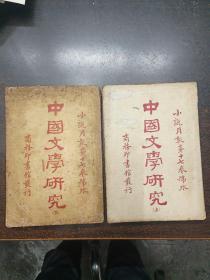 小說月報第十七卷號外
中國文學研究
商務印書館發行
小說月報第十七卷號外
中國文學研究(上)
商務印書館發行